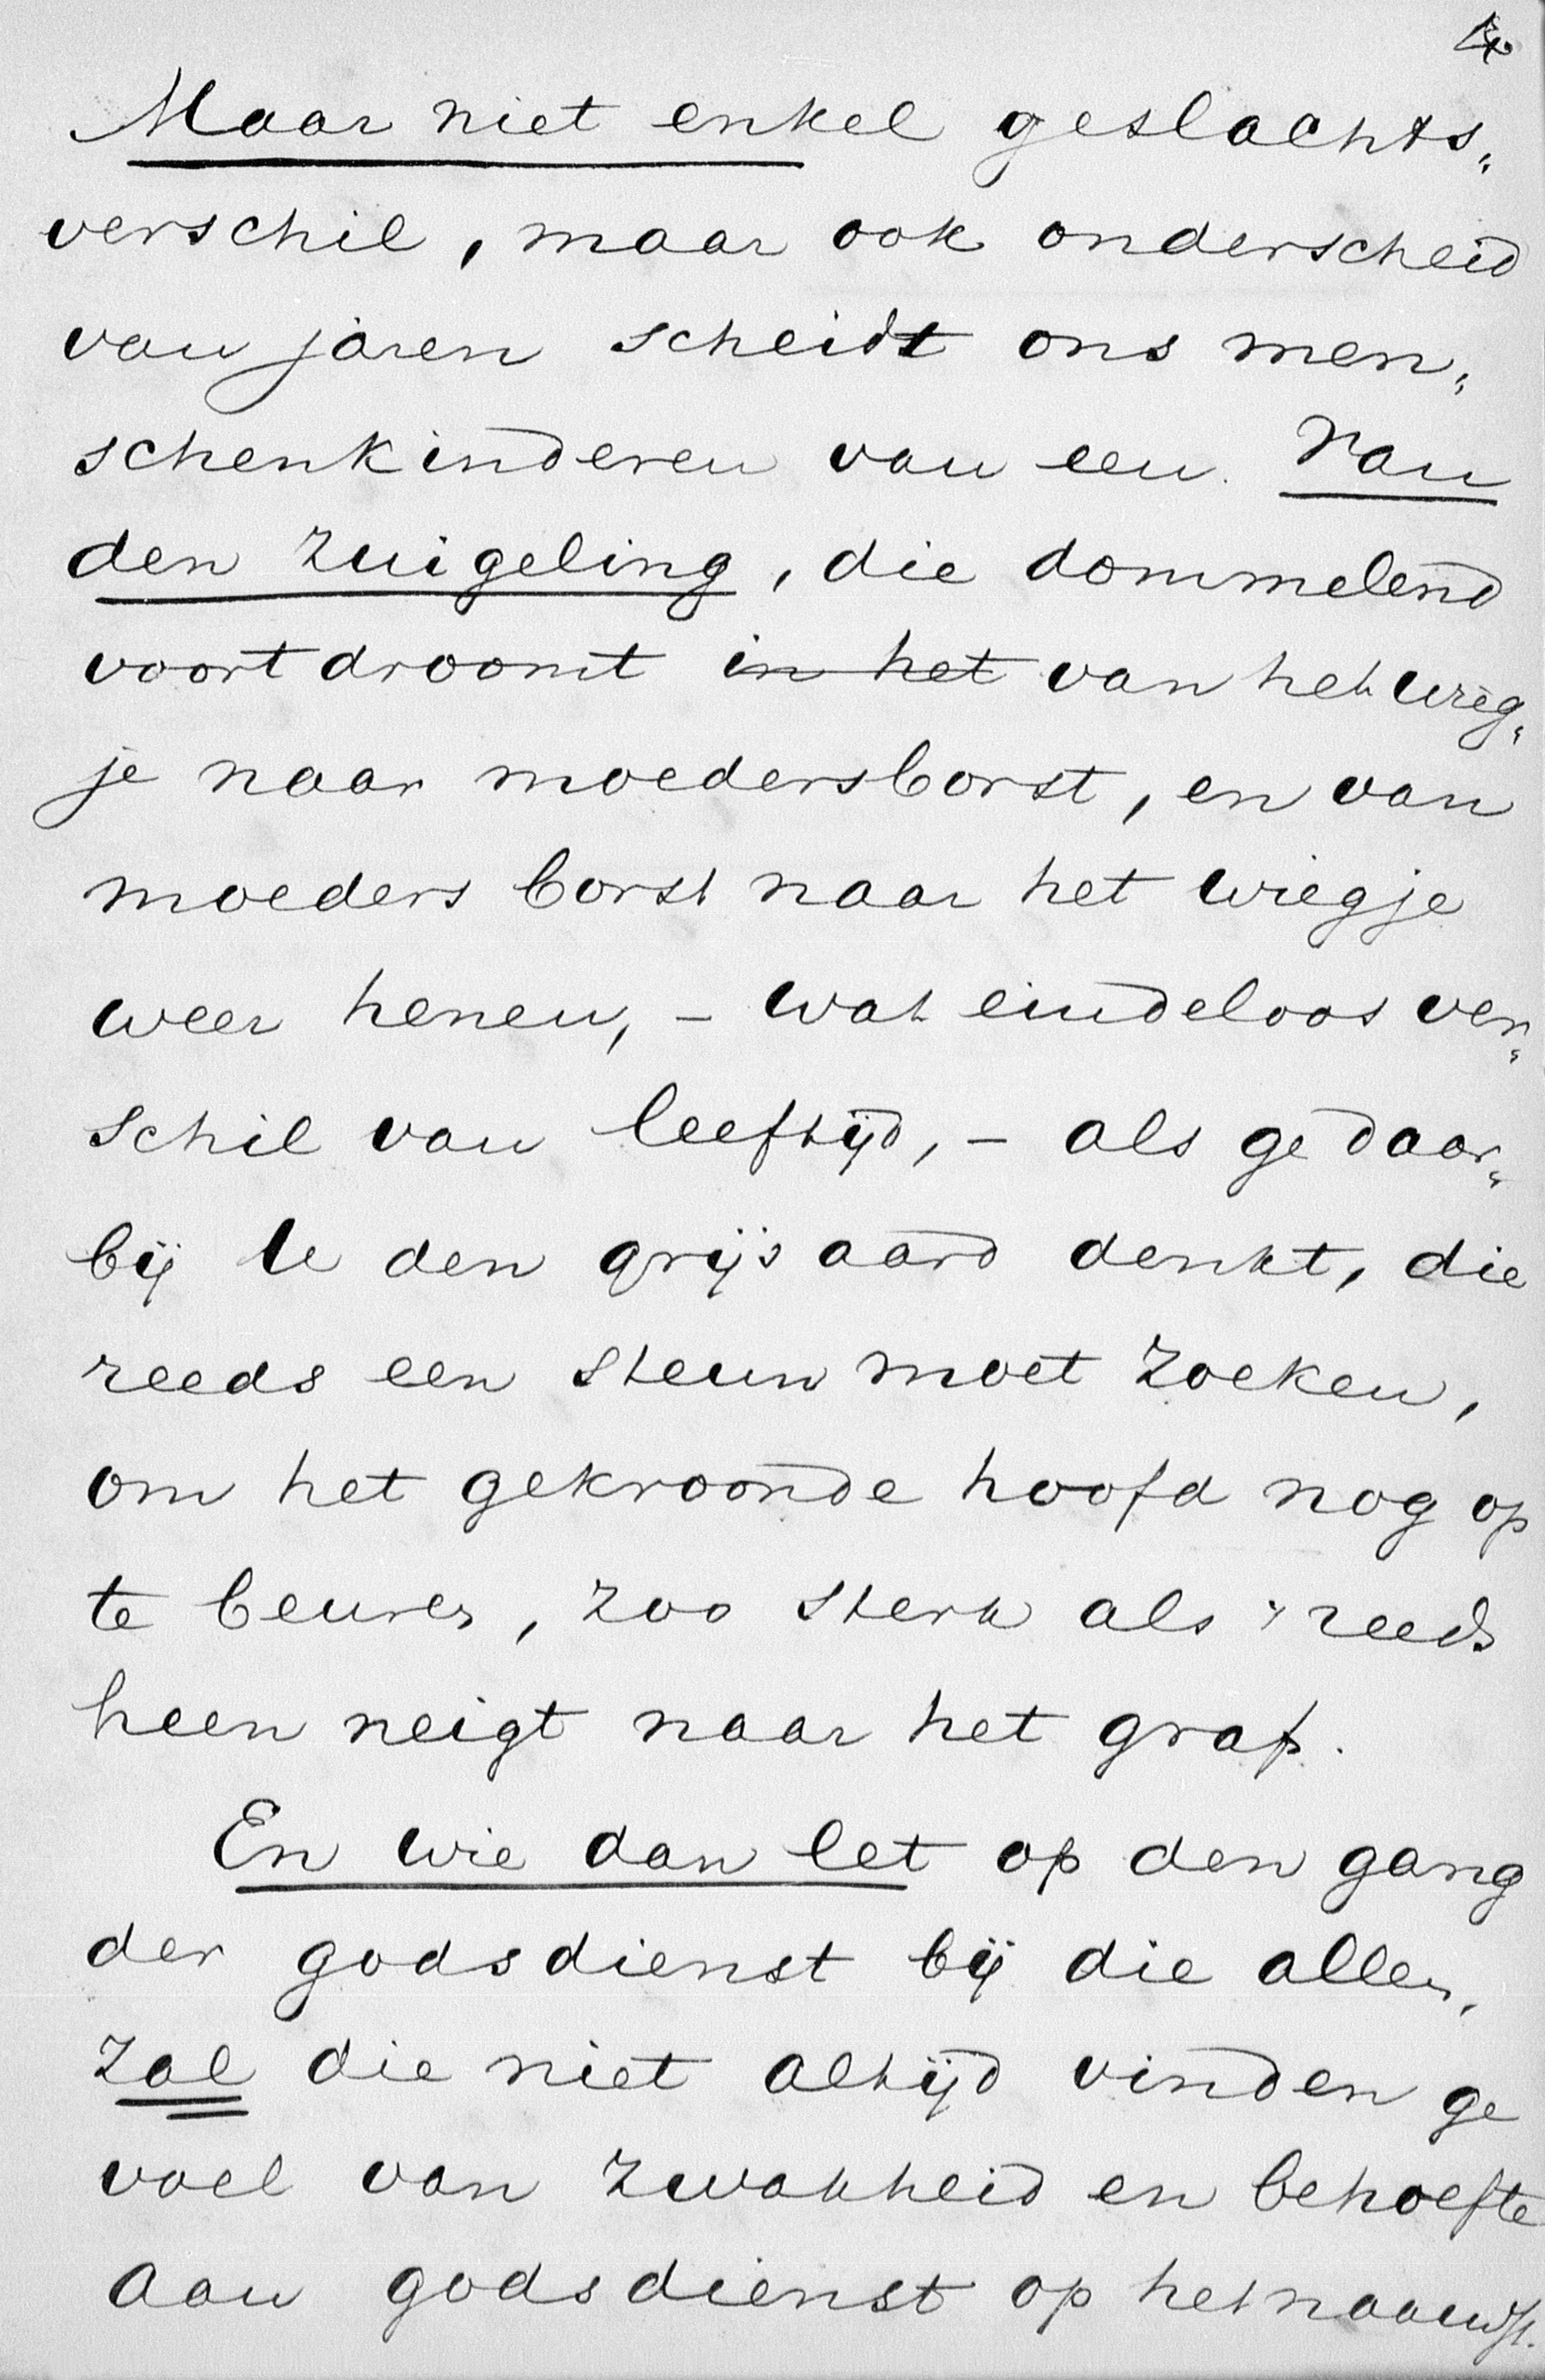 4
Maar niet enkel geslachts„
verschil, maar ook onderscheid
van jaren scheidt ons men„
schenkinderen van een. Van
den zuigeling, die dommelend
voortdroomt in het van het wieg„
je naar moedersborst, en van
moeders borst naar het wiegje
weer henen, – wat eindeloos ver„
schil van leeftijd, – als ge daar„
bij U den grijsaard denkt, die
reeds een steun moet zoeken,
om het gekroonde hoofd nog op
te beuren, zoo sterk als 't reeds
heen neigt naar het graf.
En wie dan let op den gang
der godsdienst bij die allen,
zal die niet altijd vinden ge
voel van zwakheid en behoefte
aan godsdienst op het naauwst.